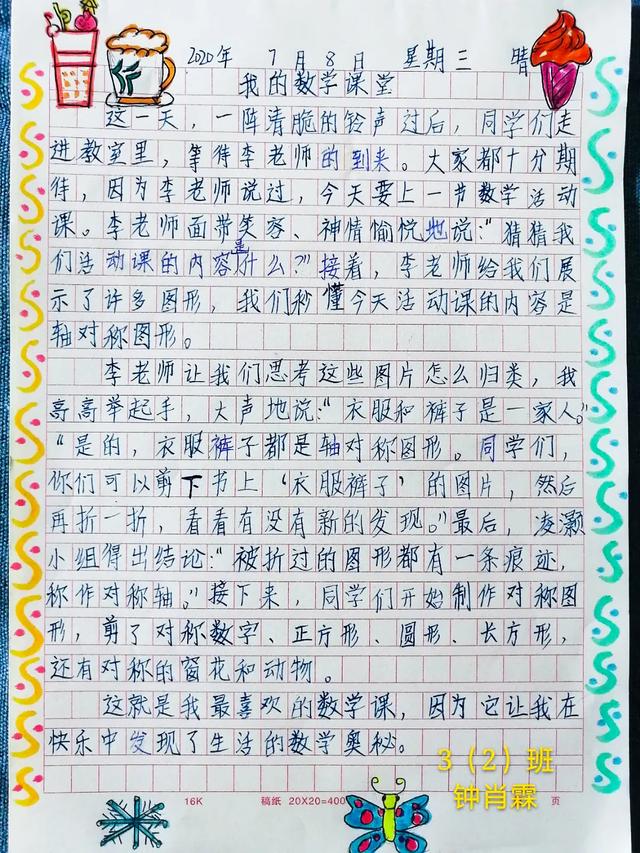 2020年 7月8日 星期三 晴
我的数学课堂
这一天，一阵清脆的铃声过后，同学们走
进教室里，等待李老师的到来。大家都十分期
待，因为李老师说过，今天要上一节数学活动
课。李老师面带笑容、神情愉悦地说：“猜猜我
们活动课的内容是什么？”接着，李老师给我们展
示了许多图形，我们秒懂今天活动课的内容是
轴对称图形。
李老师让我们思考这些图片怎么归类，我
高高举起手，大声地说：“衣服和裤子是一家人。”
“是的，衣服裤子都是轴对称图形。同学们，
你们可以剪下书上‘衣服裤子’的图片，然后
再折一折，看看有没有新的发现。”最后，凌灏
小组得出结论：“被折过的图形都有一条痕迹，
称作对称轴。”接下来，同学们开始制作对称图
形，剪了对称数字、正方形、圆形、长方形，
还有对称的窗花和动物。
这就是我最喜欢的数学课，因为它让我在
快乐中发现了生活的数学奥秘。
3（2）班
钟肖霖
16K 稿纸 20X20=400 页